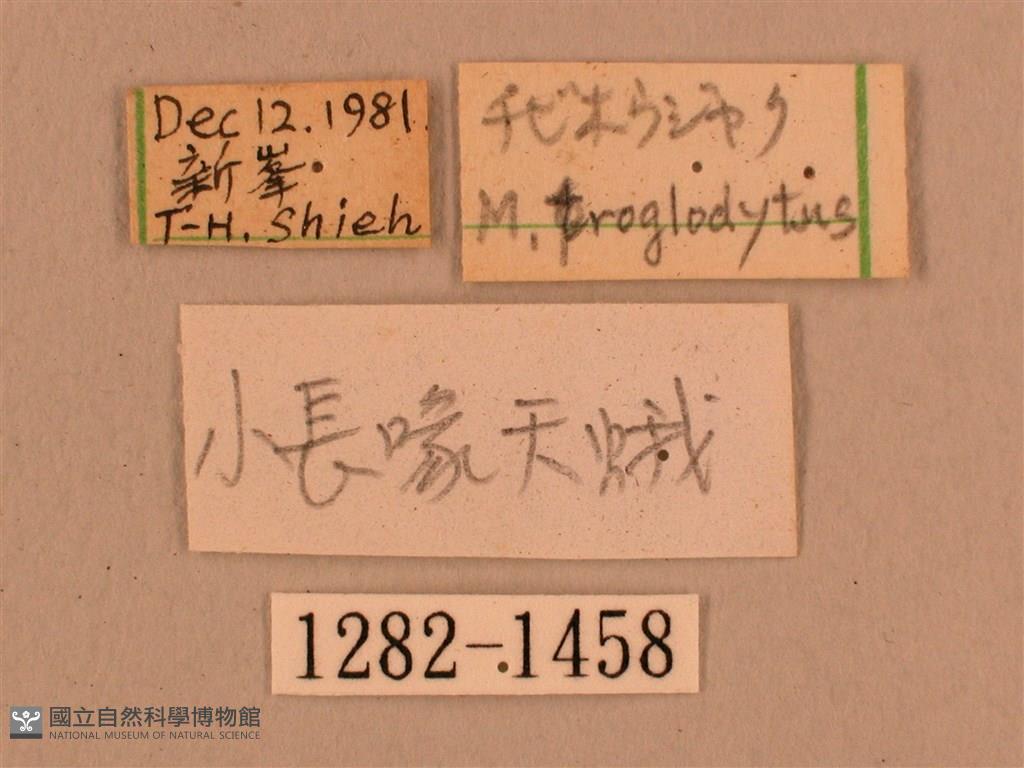 Dec 12. 1981.
新峯
T-H. Shieh
チビホウジャク
M. troglodytus
小長喙天蛾
1282-1458
國立自然科學博物館
NATIONAL MUSEUM OF NATURAL SCIENCE